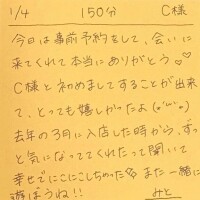 1/4 150分 C様
今日は事前予約をして、会いに
来てくれて本当にありがとう♡♡
C様と初めましてすることが出来
て、とっても嬉しかったよ(๑'ω'๑)
去年の3月に入店した時から、ずっ
と気になっててくれたって聞いて
幸せでにこにこしちゃった また一緒に
遊ぼうね!! みと